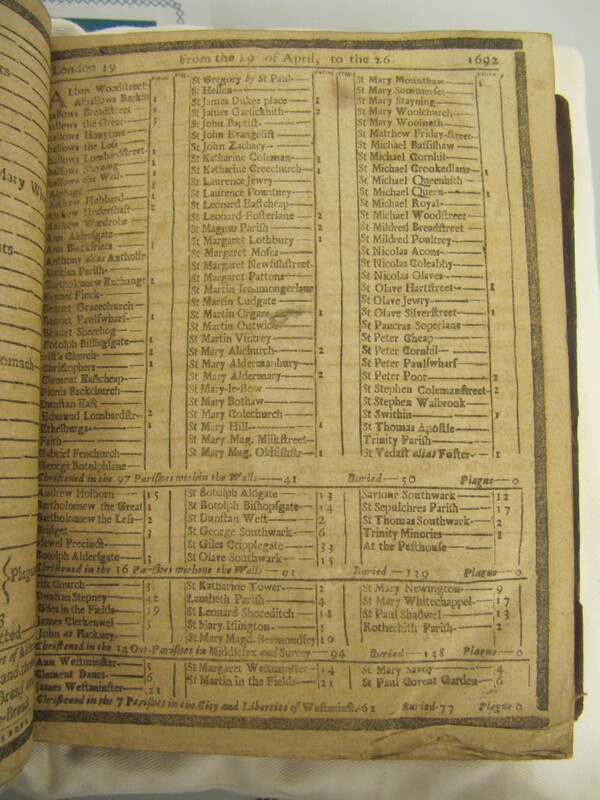 London 19 From the 19 of April, to the 26. 1692
Alban Woodstreet St Gregory by St Paul St Mary Mounthaw 1
Alhallows Barkin 1 St Hellen St Mary Sommerset
hallows Breadstreet St James Dukes place 1 St Mary Stayning
hallows the Great St James Garlickhith 2 St Mary Woolchurch
hallows Honylane St John Baptist St Mary Woolnoth
hallows the Less St John Evangelist St Matthew Friday-street
hallows Lombardstreet 1 St John Zachary St Michael Bassishaw
hallows Stayning St Katharine Coleman 1 St Michael Cornhil
hallows the Wall St Katharine Creechurch 1 St Michael Crookedlane 1
Alphage St Laurence Jewry St Michael Queenhith
Andrew Hubbard St Laurence Pountney St Michael Quern 1
Andrew Undershaft 2 St Leonard Eastcheap St Michael Royal
Andrew Wardrobe St Leonard Fosterlane 2 St Michael Woodstreet
Ann Aldersgate St Magnus Parish 2 St Mildred Breadstreet
Ann Blackfriers 1 St Margaret Lothbury 1 St Mildred Poultrey
Anthony alias Antholin St Margaret Moses St Nicolas Acons
Austins Parish St Margaret Newfishstreet St Nicolas Coleabby
Bartholomew Exchange 1 St Margaret Pattons St Nicolas Olaves
Bennet Finck St Martin Ironmongerlane St Olave Hartstreet 1
Bennet Gracechurch St Martin Ludgate St Olave Jewry
Bennet Paulswharf 1 St Martin Orgars 1 St Olave Silverstreet 1
Bennet Sherehog St Martin Outwich St Pancras Soperlane
Botolph Billingsgate 1 St Martin Vintrey St Peter Cheap
Christ's Church 2 St Mary Abchurch 2 St Peter Cornhil
Christophers 1 St Mary Aldermanbury St Peter Paulswharf
Clement Eastcheap St Mary Aldermary 2 St Peter Poor 2
Dionis Backchurch St Mary-le-Bow St Stephen Colemanstreet 2
Dunstan East St Mary Bothaw St Stephen Walbrook
Edmund Lombardstr 2 St Mary Colechurch St Swithin 1
Ethelburga 1 St Mary Hill 1 St Thomas Apostle
Faith St Mary Mag. Milkstreet Trinity Parish
Gabriel Fenchurch St Mary Mag. Oldfishstr 1 St Vedast alias Foster 1
George Botolphlane
Christened in the 97 Parishes within the Walls 41 Buried 50 Plague 0
Andrew Holborn 15 St Botolph Aldgate 13 Saviour Southwark 12
Bartholomew the Great 1 St Botolph Bishopsgate 14 St Sepulchres Parish 17
Bartholomew the Less 2 St Dunstan West 2 St Thomas Southwark 2
Bridget 3 St George Southwark 6 Trinity Minories 1
Bridewel Precinct St Giles Cripplegate 33 At the Pesthouse
Botolph Aldersgate 3 St Olave Southwark 15
Christened in the 16 Parishes without the Walls 92 Buried 139 Plague 0
Christ Church 3 St Katharine Tower 2 St Mary Newington 9
Dunstan Stepney 42 Lambeth Parish 4 St Mary Whitechappel 17
Giles in the Fields 49 St Leonard Shoreditch St Paul Shadwel 13
James Clerkenwel 5 St Mary Islington 1 Rotherhith Parish 2
John at Hackney St Mary Magd. Bermondsey 10
Christened in the 14 Out-Parishes in Middlesex and Surrey 94 Buried 158 Plague 0
Ann Westminster 5 St Margaret Westminster 14 St Mary Savoy 4
Clement Danes 6 St Martin in the Fields 21 St Paul Covent Garden 6
James Westminster 21
Christened in the 7 Parishes in the City and Liberties of Westminst. 62 Buried 77 Plague 0